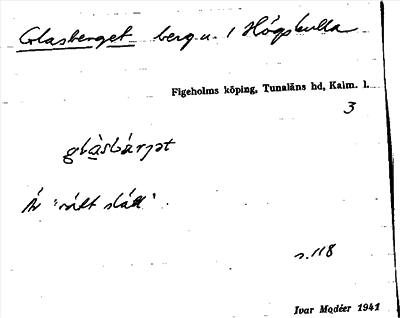 Glasberget berg u. / Högskulla
Figeholms köping, Tunaläns hd, Kalm. l.
3
glàsbárjət
Är "rält slätt".
s. 118
Ivar Modéer 1941